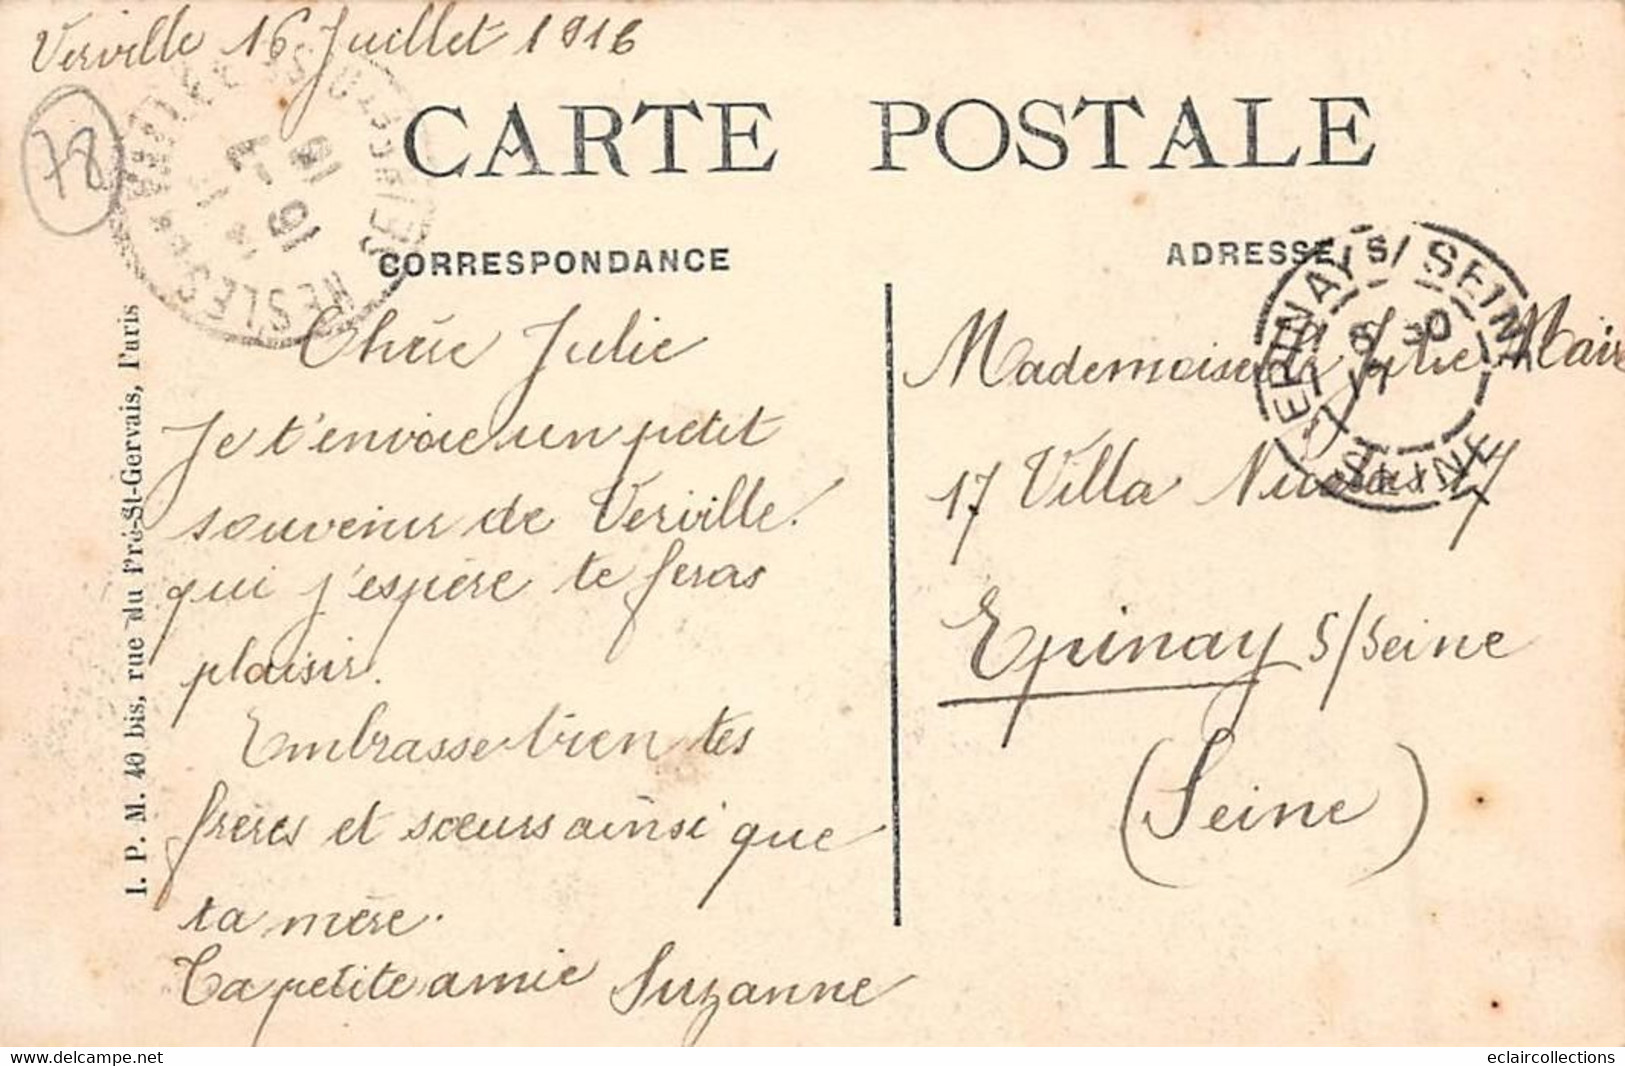 Verville 16 Juillet 1916
78
CARTE POSTALE
CORRESPONDANCE
ADRESSE
NESLES
16 -7
16
EPINAY S/ SEINE
SEINE
I. P. M. 40 bis, rue du Pré-St-Gervais, Paris
Chère Julie
Je t'envoie un petit
souvenir de Verville.
qui j'espère te feras
plaisir.
Embrasse bien tes
frères et sœurs ainsi que
ta mère.
Ta petite amie Suzanne
Mademoiselle Julie Mair
17 Villa 17
Epinay S/Seine
(Seine)
eclaircollections